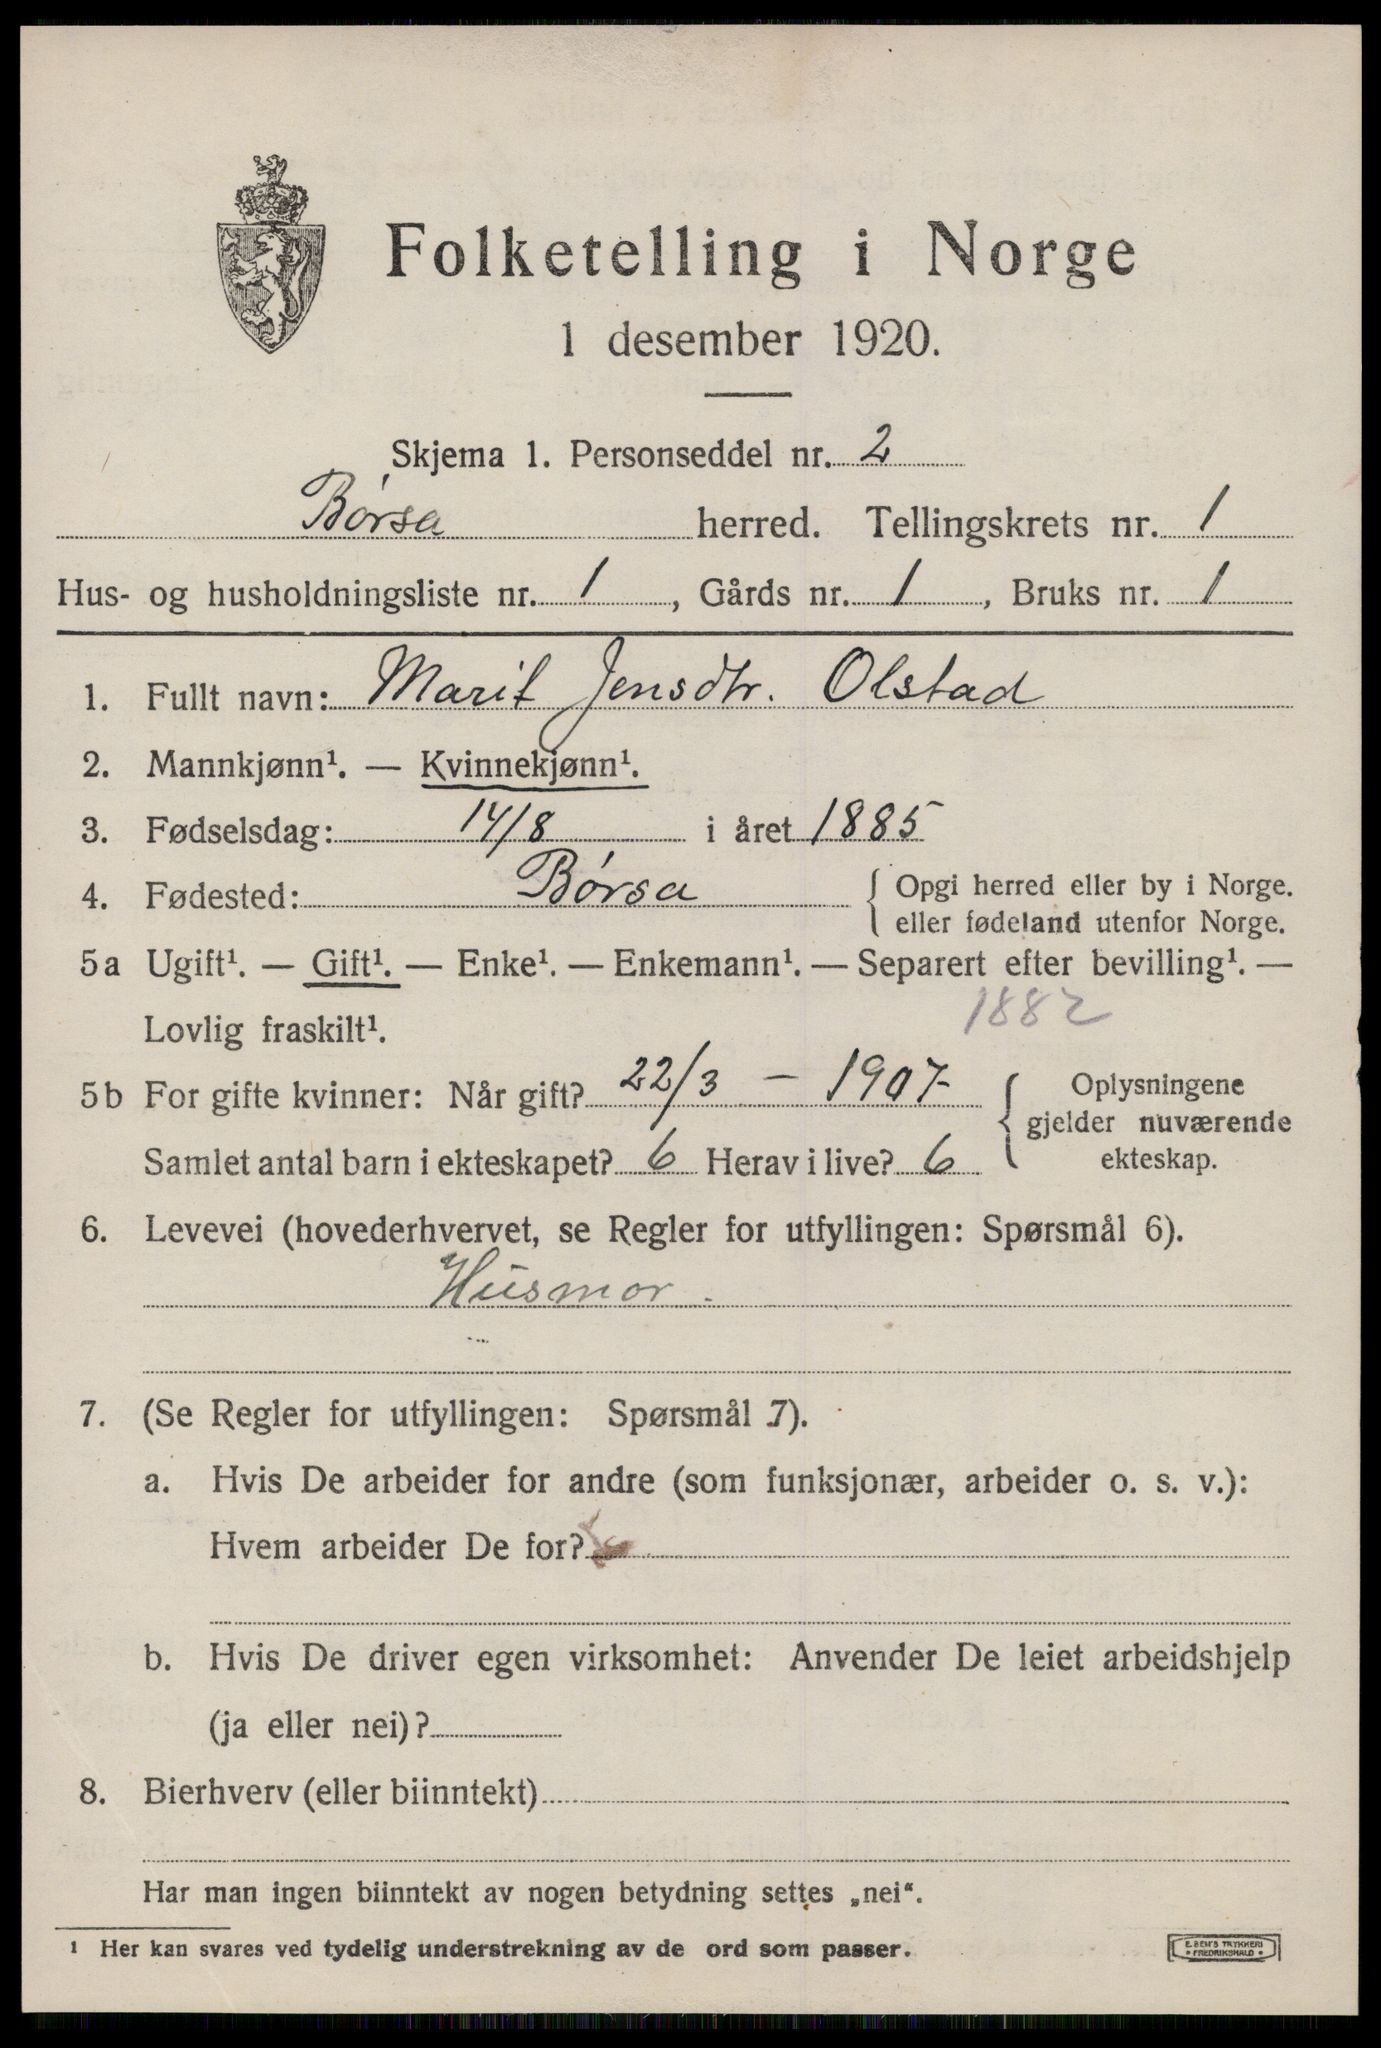 Folketelling i Norge
1 desember 1920.
Skjema 1. Personseddel nr. 2
Børsa herred. Tellingskrets nr. 1
Hus- og husholdningsliste nr. 1, Gårds nr. 1, Bruks nr. 1
1. Fullt navn: Marit Jensdtr. Olstad
2. Mannkjønn¹. — Kvinnekjønn¹.
3. Fødselsdag: 14/8 i året 1885
4. Fødested: Børsa { Opgi herred eller by i Norge.
eller fødeland utenfor Norge.
5a Ugift¹. — Gift¹. — Enke¹. — Enkemann¹. — Separert efter bevilling¹. —
Lovlig fraskilt¹. 1882
5b For gifte kvinner: Når gift? 22/3 – 1907- { Oplysningene
gjelder nuværende
Samlet antal barn i ekteskapet? 6 Herav i live? 6 ekteskap.
6. Levevei (hovederhvervet, se Regler for utfyllingen: Spørsmål 6).
Husmor.
7. (Se Regler for utfyllingen: Spørsmål 7).
a. Hvis De arbeider for andre (som funksjonær, arbeider o. s. v.):
Hvem arbeider De for?
b. Hvis De driver egen virksomhet: Anvender De leiet arbeidshjelp
(ja eller nei)?
8. Bierhverv (eller biinntekt)
Har man ingen biinntekt av nogen betydning settes „nei“.
¹ Her kan svares ved tydelig understrekning av de ord som passer.
E. SEM'S TRYKKERI
• FREDRIKSHALD •